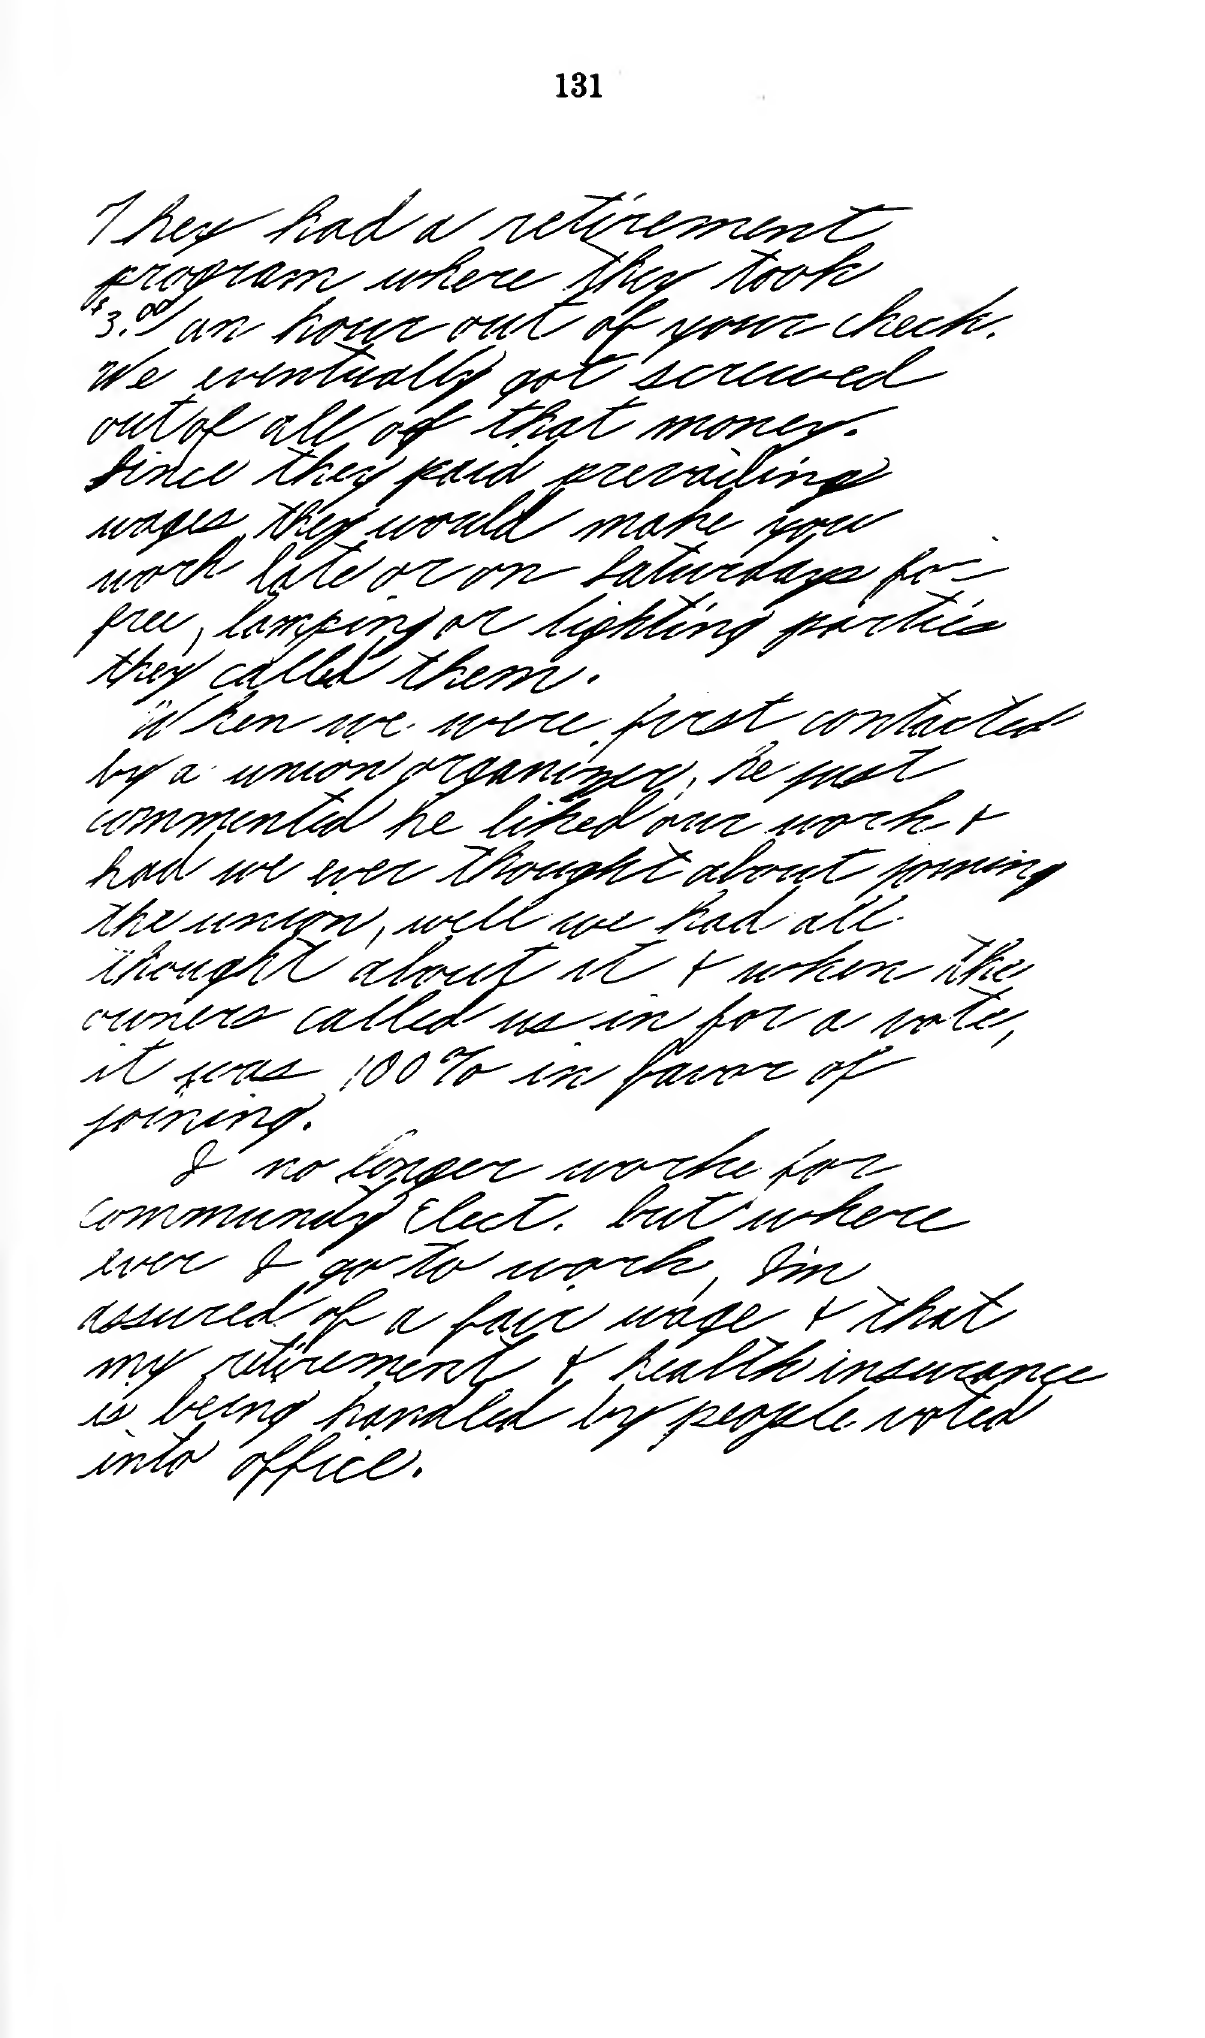 131
They had a retirement
program where they took
$3.00 an hour out of your check.
We eventually got screwed
out of all of that money.
Since they paid prevailing
wages they would make you
work late or on Saturdays for
free, lamping or lighting parties
they called them.
When we were first contacted
by a union organizer, he just
commented he liked our work &
had we ever thought about joining
the union, well we had all
thought about it & when the
owners called us in for a vote,
it was 100% in favor of
joining.
I no longer worke for
Community Elect. but where
ever I go to work, I'm
assured of a fair wage & that
my retirement & health insurance
is being handled by people voted
into office.